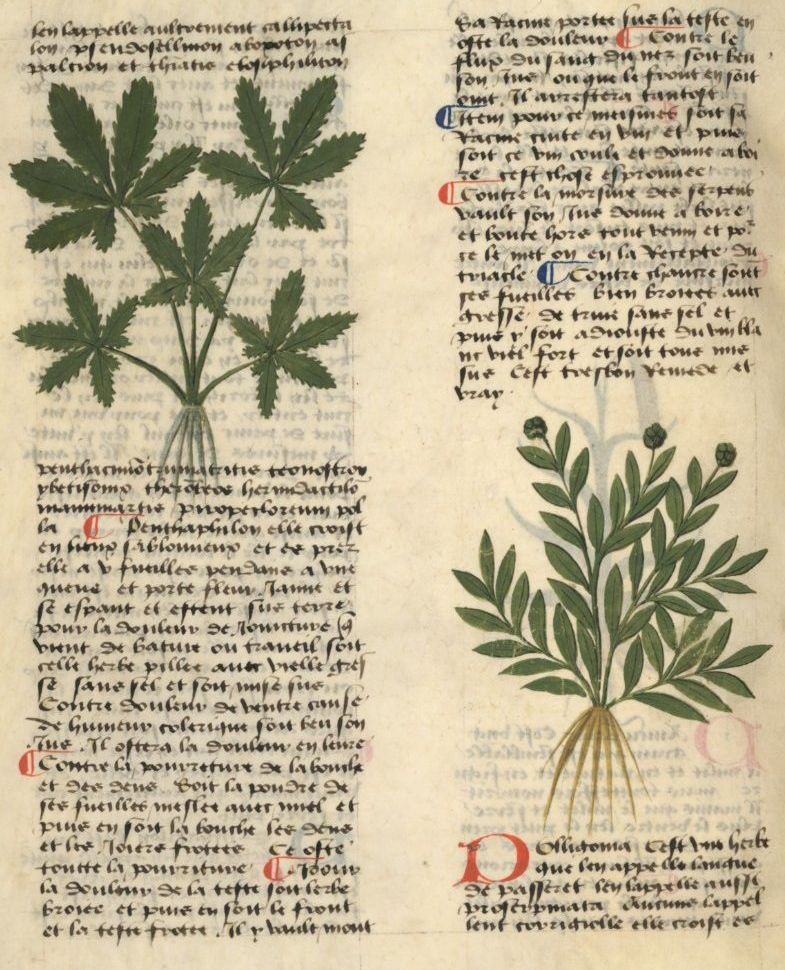 len lappelle aultrement callipecta
lon pseudosellinon abopoton as
palcion et thiatis etosiphiliton
penthacinuō trumatritis teonostros
ybetisomo theroteos hermdactilō
manumartis propeclorcum pol
la ¶ Penthaphilon elle croist
en lieux sablonneux et es prez
elle a v fueilles pendans a vne
queue et porte fleur Jaune et
se espant et estent sus terre
pour la douleur de Joincture q̄
vient de bature ou traueil soit
celle herbe pillee auec vielle gres
se sans sel et soit mise sus
Contre douleur de ventre cause
de humeur colerique soit beu son
Jus . Il ostera la douleur en leure
¶ Contre la pourreture de la bouche
et des dens soit la pouldre de
ses fueilles meslee auec miel et
puis en soit la bouche les dens
et les Joiees frotees Ce oste
toutte la pourriture ¶ Pour
la douleur de la teste soit lerbe
broiee et puis en soit le front
et la teste frotee . Il y vault mout
Sa Racine portee sus la teste en
oste la douleur ¶ Contre le
flux du sanc du nez soit beu
son Jus ou que le front en soit
oint . Il arrestera tantost
¶ Item pour ce meismes soit sa
Racine cuite en vin et puis
soit ce vin coule et donne a boi
re cest chose esprouuee
¶ Contre la morsure des serpens
vault son Jus donne a boire
et boute hors tout venin et po͛
ce le met on en la Recepte du
triacle ¶ Contre chancre soient
ses fueilles bien broiees auec
gresse de truie sans sel et
puis y soit adiouste du vin bla
nc viel fort et soit tout mis
sus Cest tresbon Remede et
vray .
POlligonia Cest vne herbe
que len appelle langue
de passeret len lappelle aussi
proserpinata Aucuns lappel
lent corrigiolle elle croist es